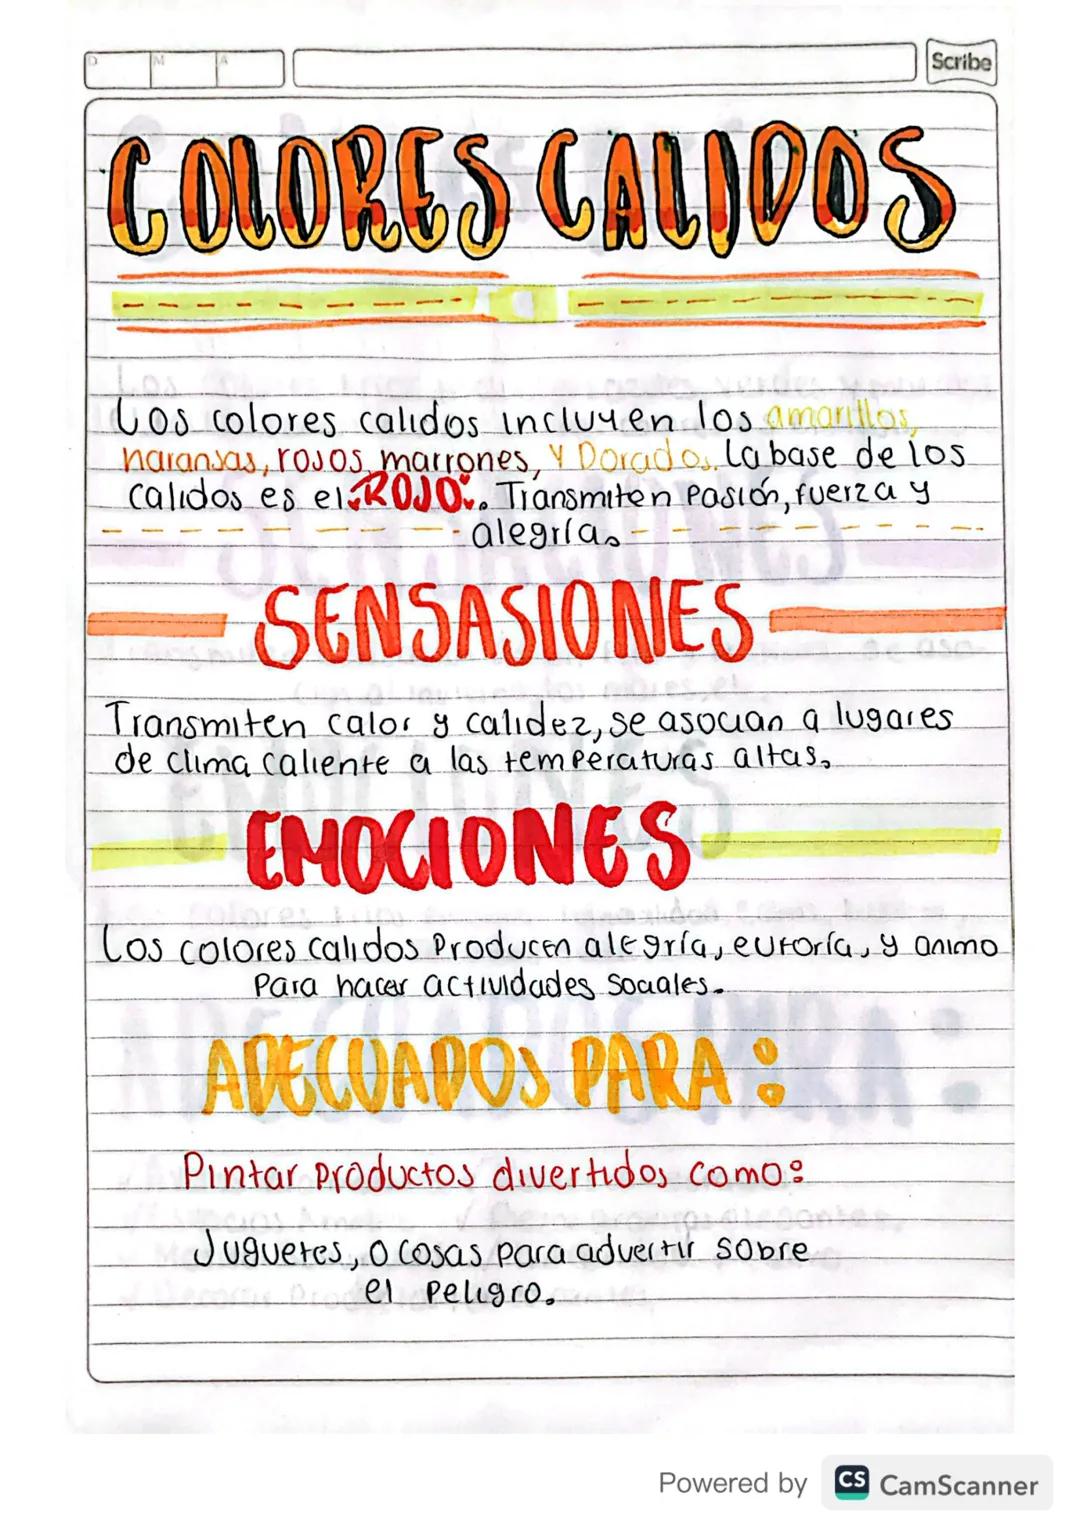 D M A
Scribe
COLORES CALIDOS
Los colores calidos incluyen los amarillos,
naransas, rojos, marrones, y Dorados. La base de los
calidos es el ROJO. Transmiten Pasión, fuerza y
alegría.
SENSASIONES
Transmiten calor y calidez, se asocian a lugares
de clima caliente a las temperaturas altas.
EMOCIONES
Los colores calidos Producen alegría, euforía, y animo
Para hacer actividades Sociales.
ADECUADOS PARA:
Pintar productos divertidos como:
Juguetes, o cosas para advertir sobre
el Peligro.
Powered by CS CamScanner